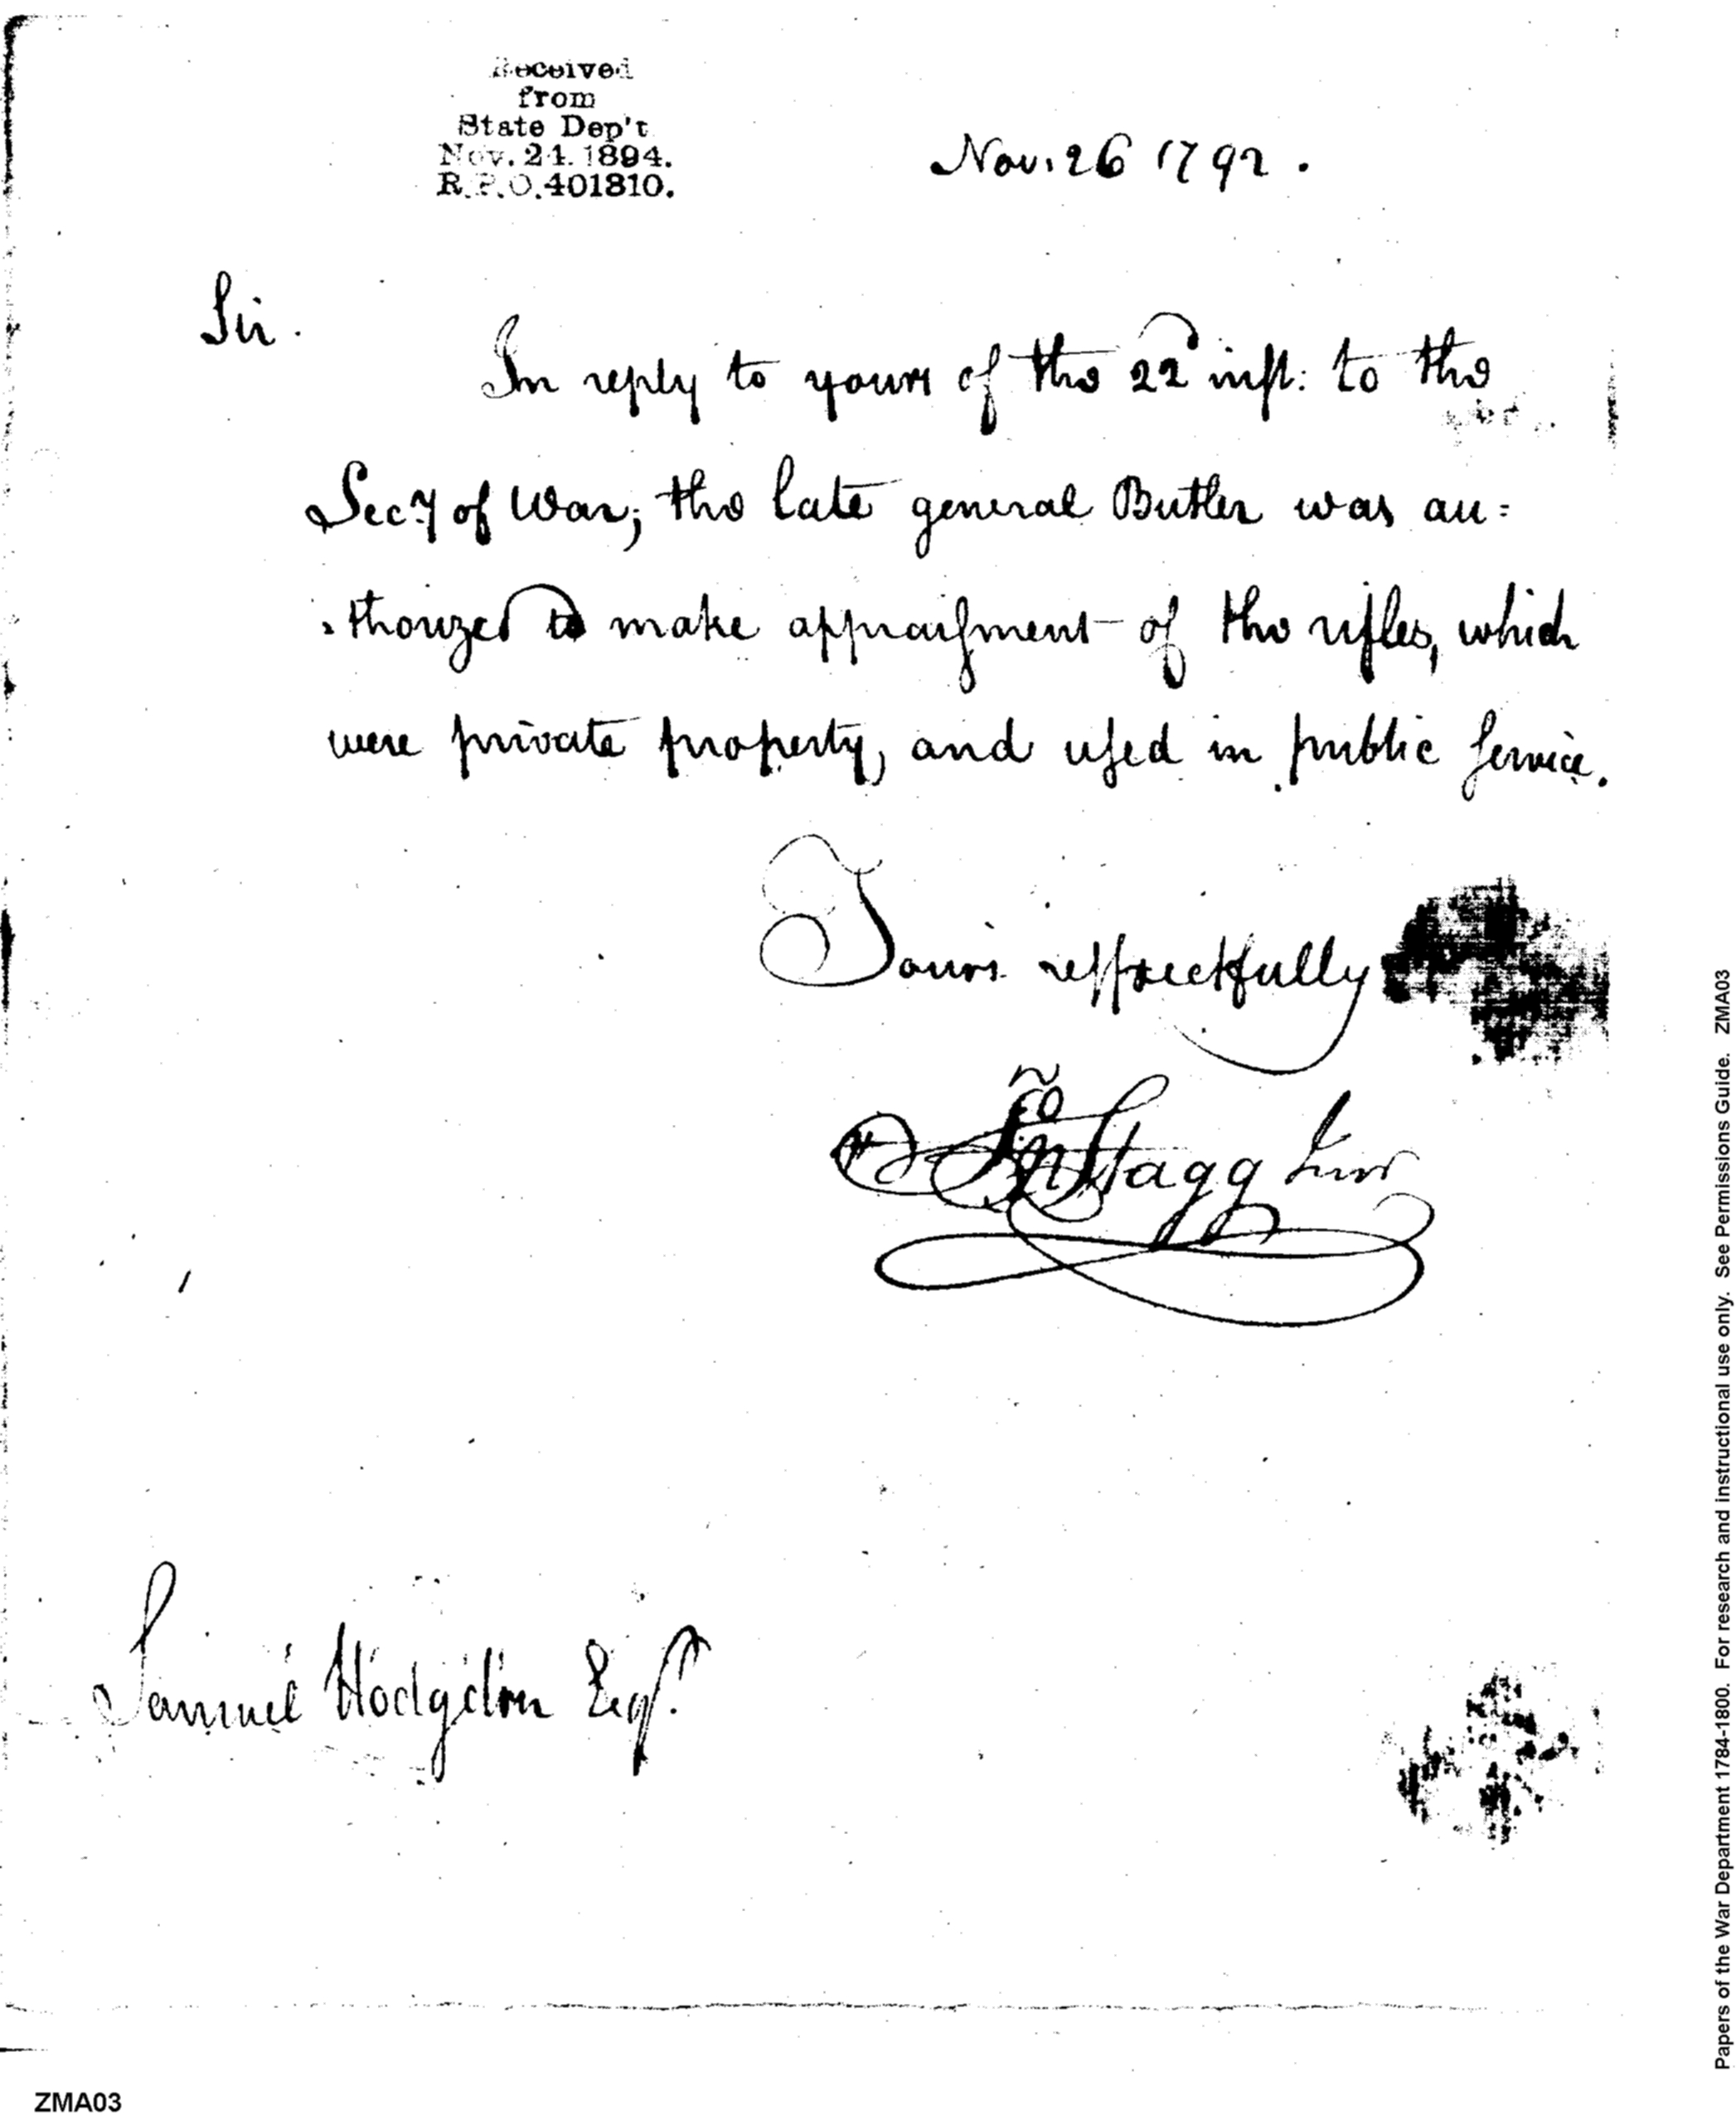 Received
from
State Dep't
Nov. 24. 1894.
R.P.O. 401810.
Nov. 26 1792.
Sir.
In reply to yours of the 22d inst: to the
Secy of War; the late general Butler was au=
=thorized to make appraisment of the rifles, which
were private property, and used in public service.
Yours respectfully
Jno Stagg Junr
Samuel Hodgdon Esqr.
Papers of the War Department 1784-1800. For research and instructional use only. See Permissions Guide. ZMA03
ZMA03